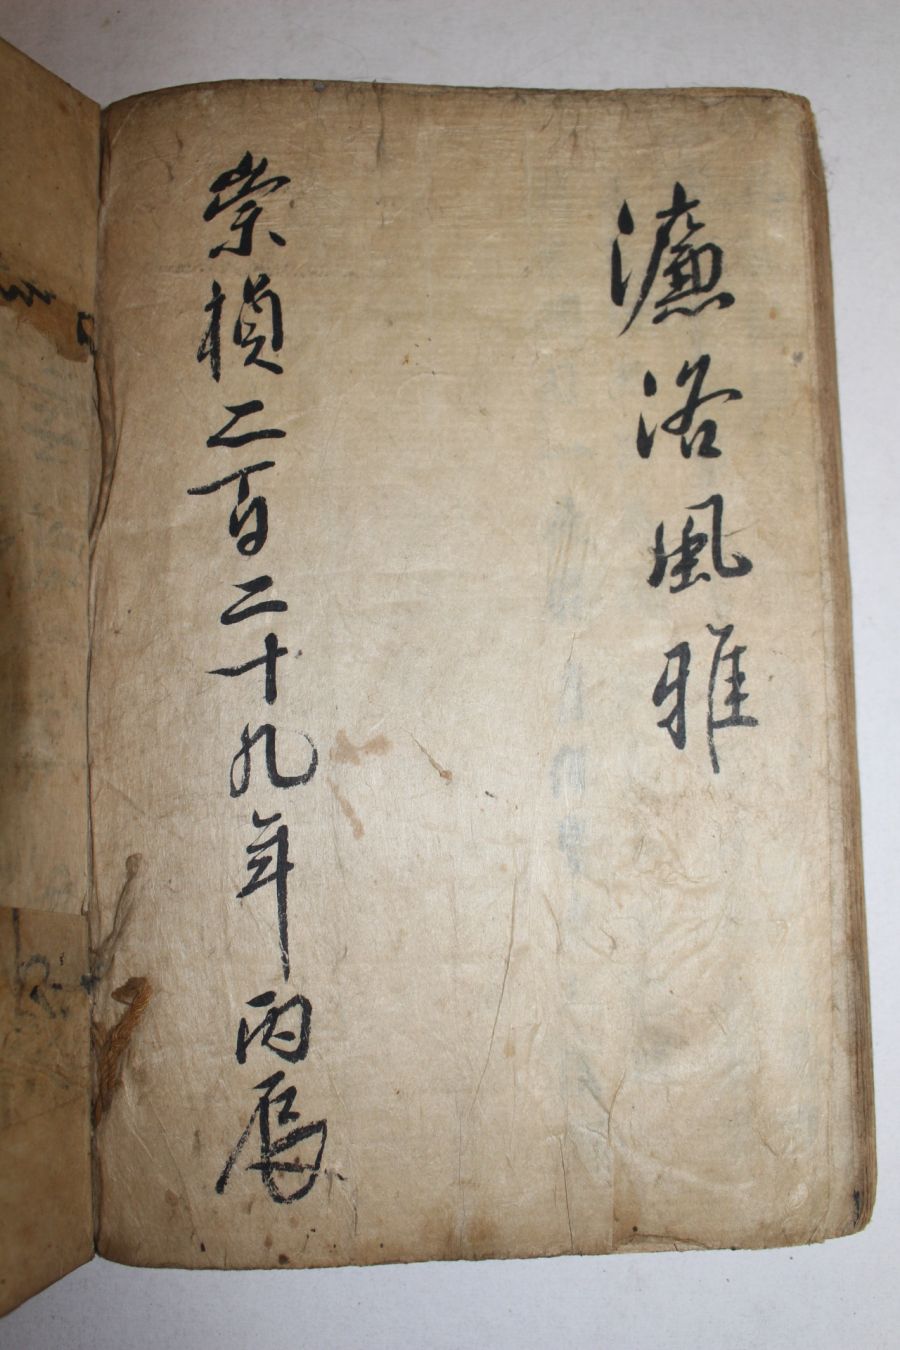 濂洛風雅
崇禎二百二十九年丙辰